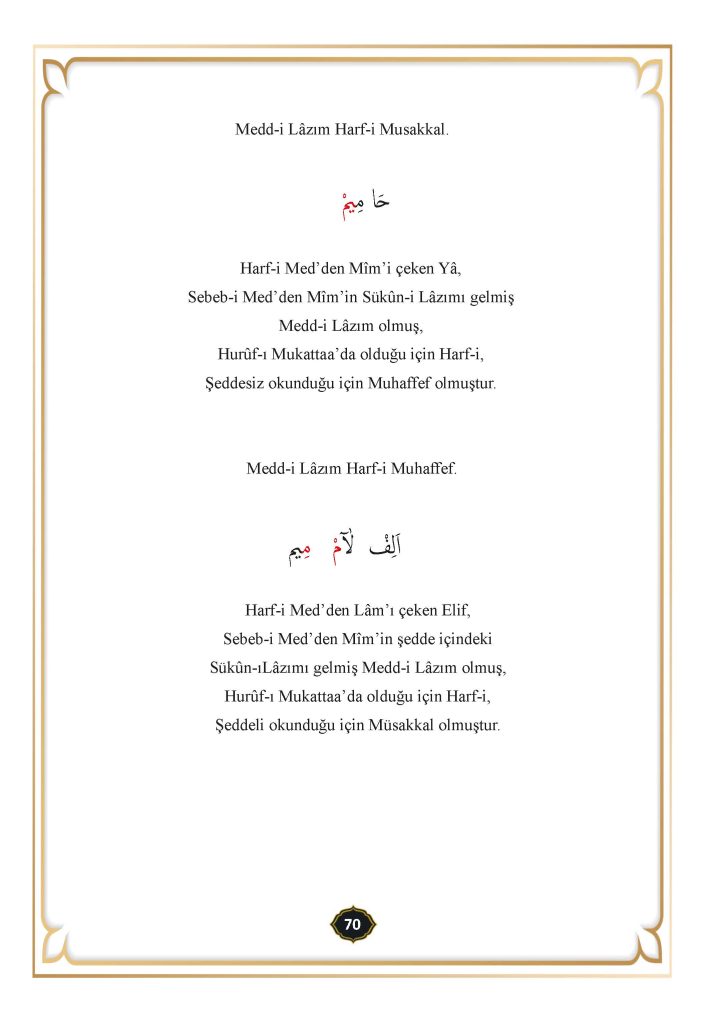 Medd-i Lâzım Harf-i Musakkal.
حَا مِيمْ
Harf-i Med’den Mîm’i çeken Yâ,
Sebeb-i Med’den Mîm’in Sükûn-i Lâzımı gelmiş
Medd-i Lâzım olmuş,
Hurûf-ı Mukattaa’da olduğu için Harf-i,
Şeddesiz okunduğu için Muhaffef olmuştur.
Medd-i Lâzım Harf-i Muhaffef.
اَلِفْ لَآمْ مِيم
Harf-i Med’den Lâm’ı çeken Elif,
Sebeb-i Med’den Mîm’in şedde içindeki
Sükûn-ıLâzımı gelmiş Medd-i Lâzım olmuş,
Hurûf-ı Mukattaa’da olduğu için Harf-i,
Şeddeli okunduğu için Müsakkal olmuştur.
70